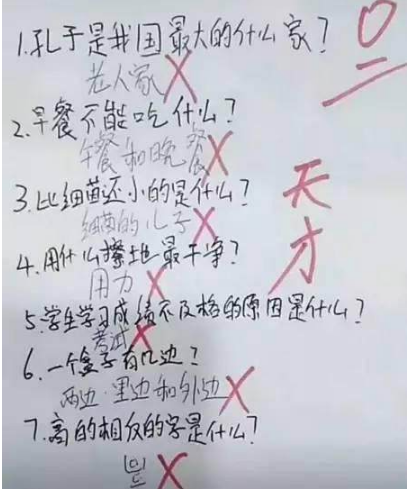 1.孔子是我国最大的什么家?
老人家
2.早餐不能吃什么?
午餐和晚餐
3.比细菌还小的是什么?
细菌的儿子
4.用什么擦地最干净?
用力
5.学生学习成绩不及格的原因是什么?
考试
6.一个盒子有几边?
两边·里边和外边
7.高的相反的字是什么?
0
天才